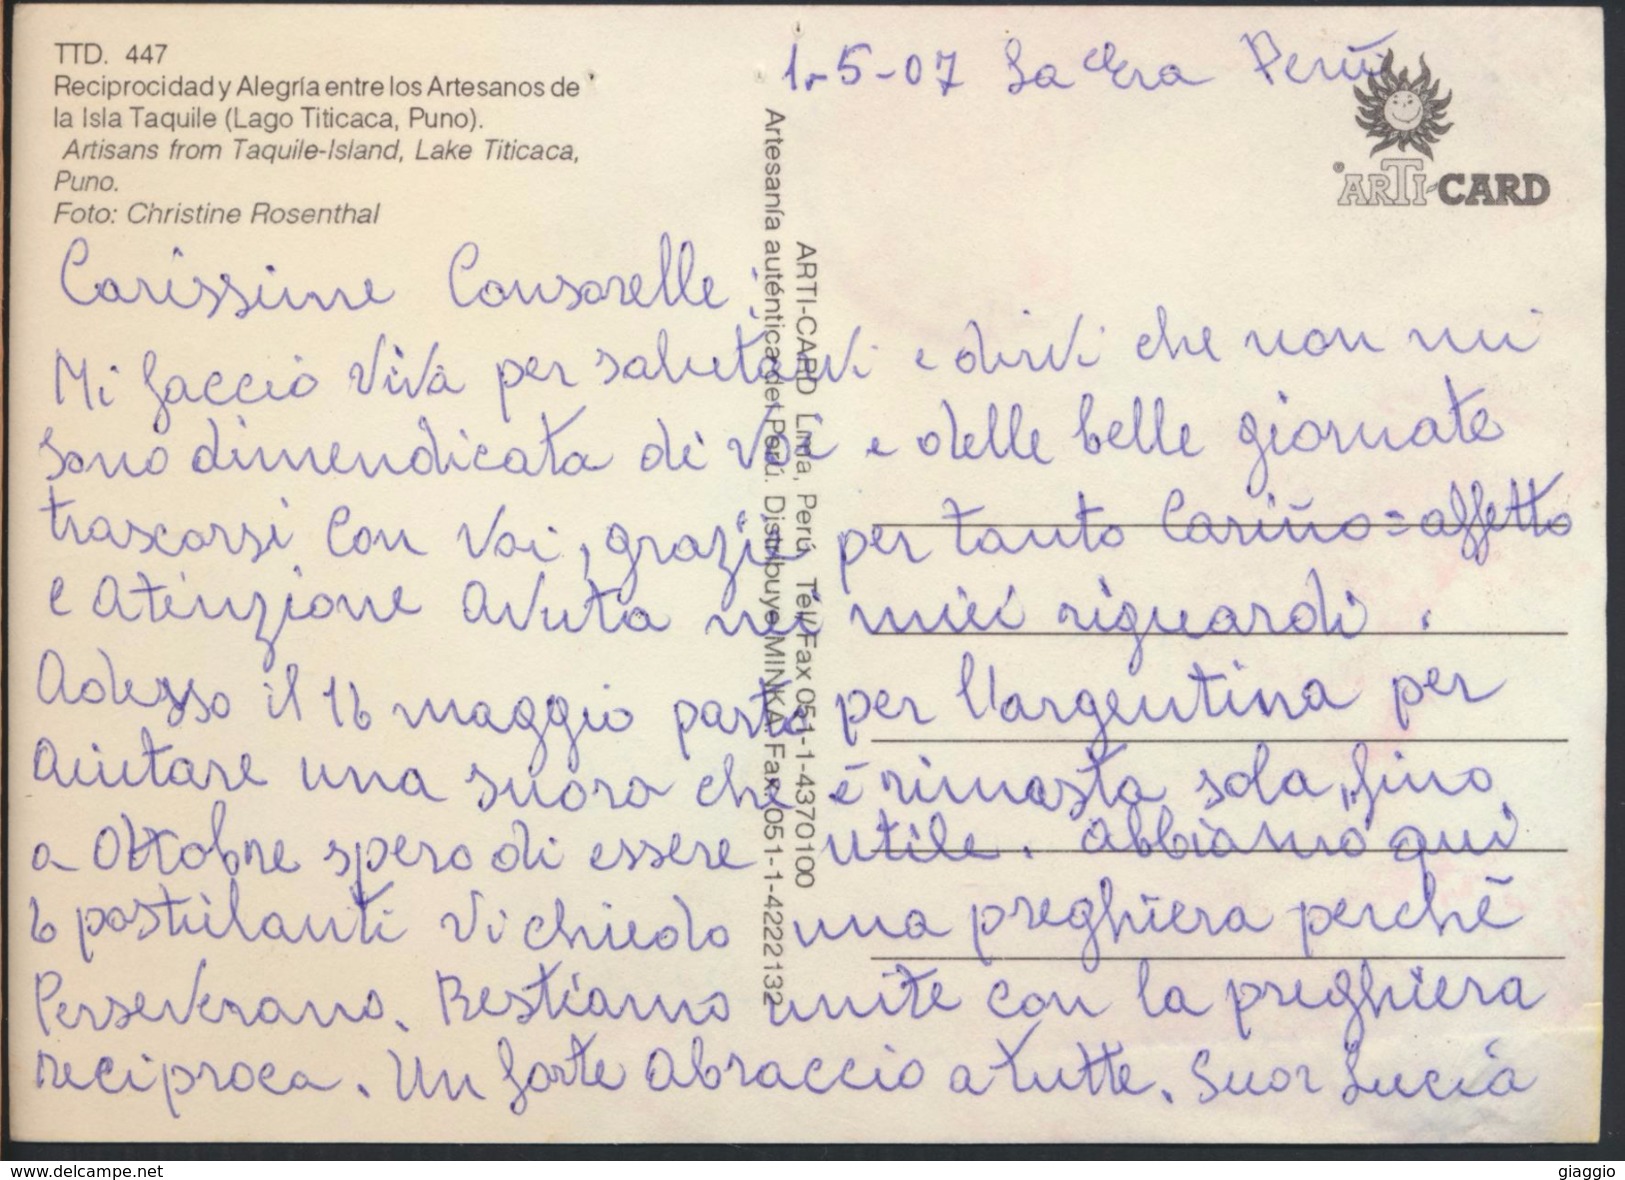 TTD. 447
Reciprocidad y Alegría entre los Artesanos de
la Isla Taquile (Lago Titicaca, Puno).
Artisans from Taquile-Island, Lake Titicaca,
Puno.
Foto: Christine Rosenthal
1-5-07 La Era Perù
®ARTI-CARD
Artesanía auténtica del Perú. Distribuye MINKA. Fax: 051-1-4222132
ARTI-CARD Lima, Perú, Tél/Fax 051-1-4370100
Carissime Consorelle,
Mi faccio viva per salutarvi e dirvi che non mi
sono dimendicata di voi e delle belle giornate
trascorsi con voi, grazie per tanto Cariño = affetto
e atenzione avuta nei miei riguardi.
Adesso il 16 maggio parto per l'argentina per
aiutare una suora che è rimasta sola, fino
a Ottobre spero di essere utile. abbiamo qui
6 postulanti vi chiedo una preghiera perchè
Perseverano. Restiamo unite con la preghiera
reciproca. Un forte abraccio a tutte. Suor Lucia
www.delcampe.net
giaggio